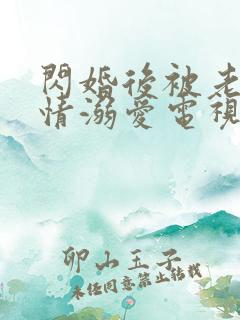 閃婚後被老
情溺愛電視
卯山玉子
未經同意禁止轉載